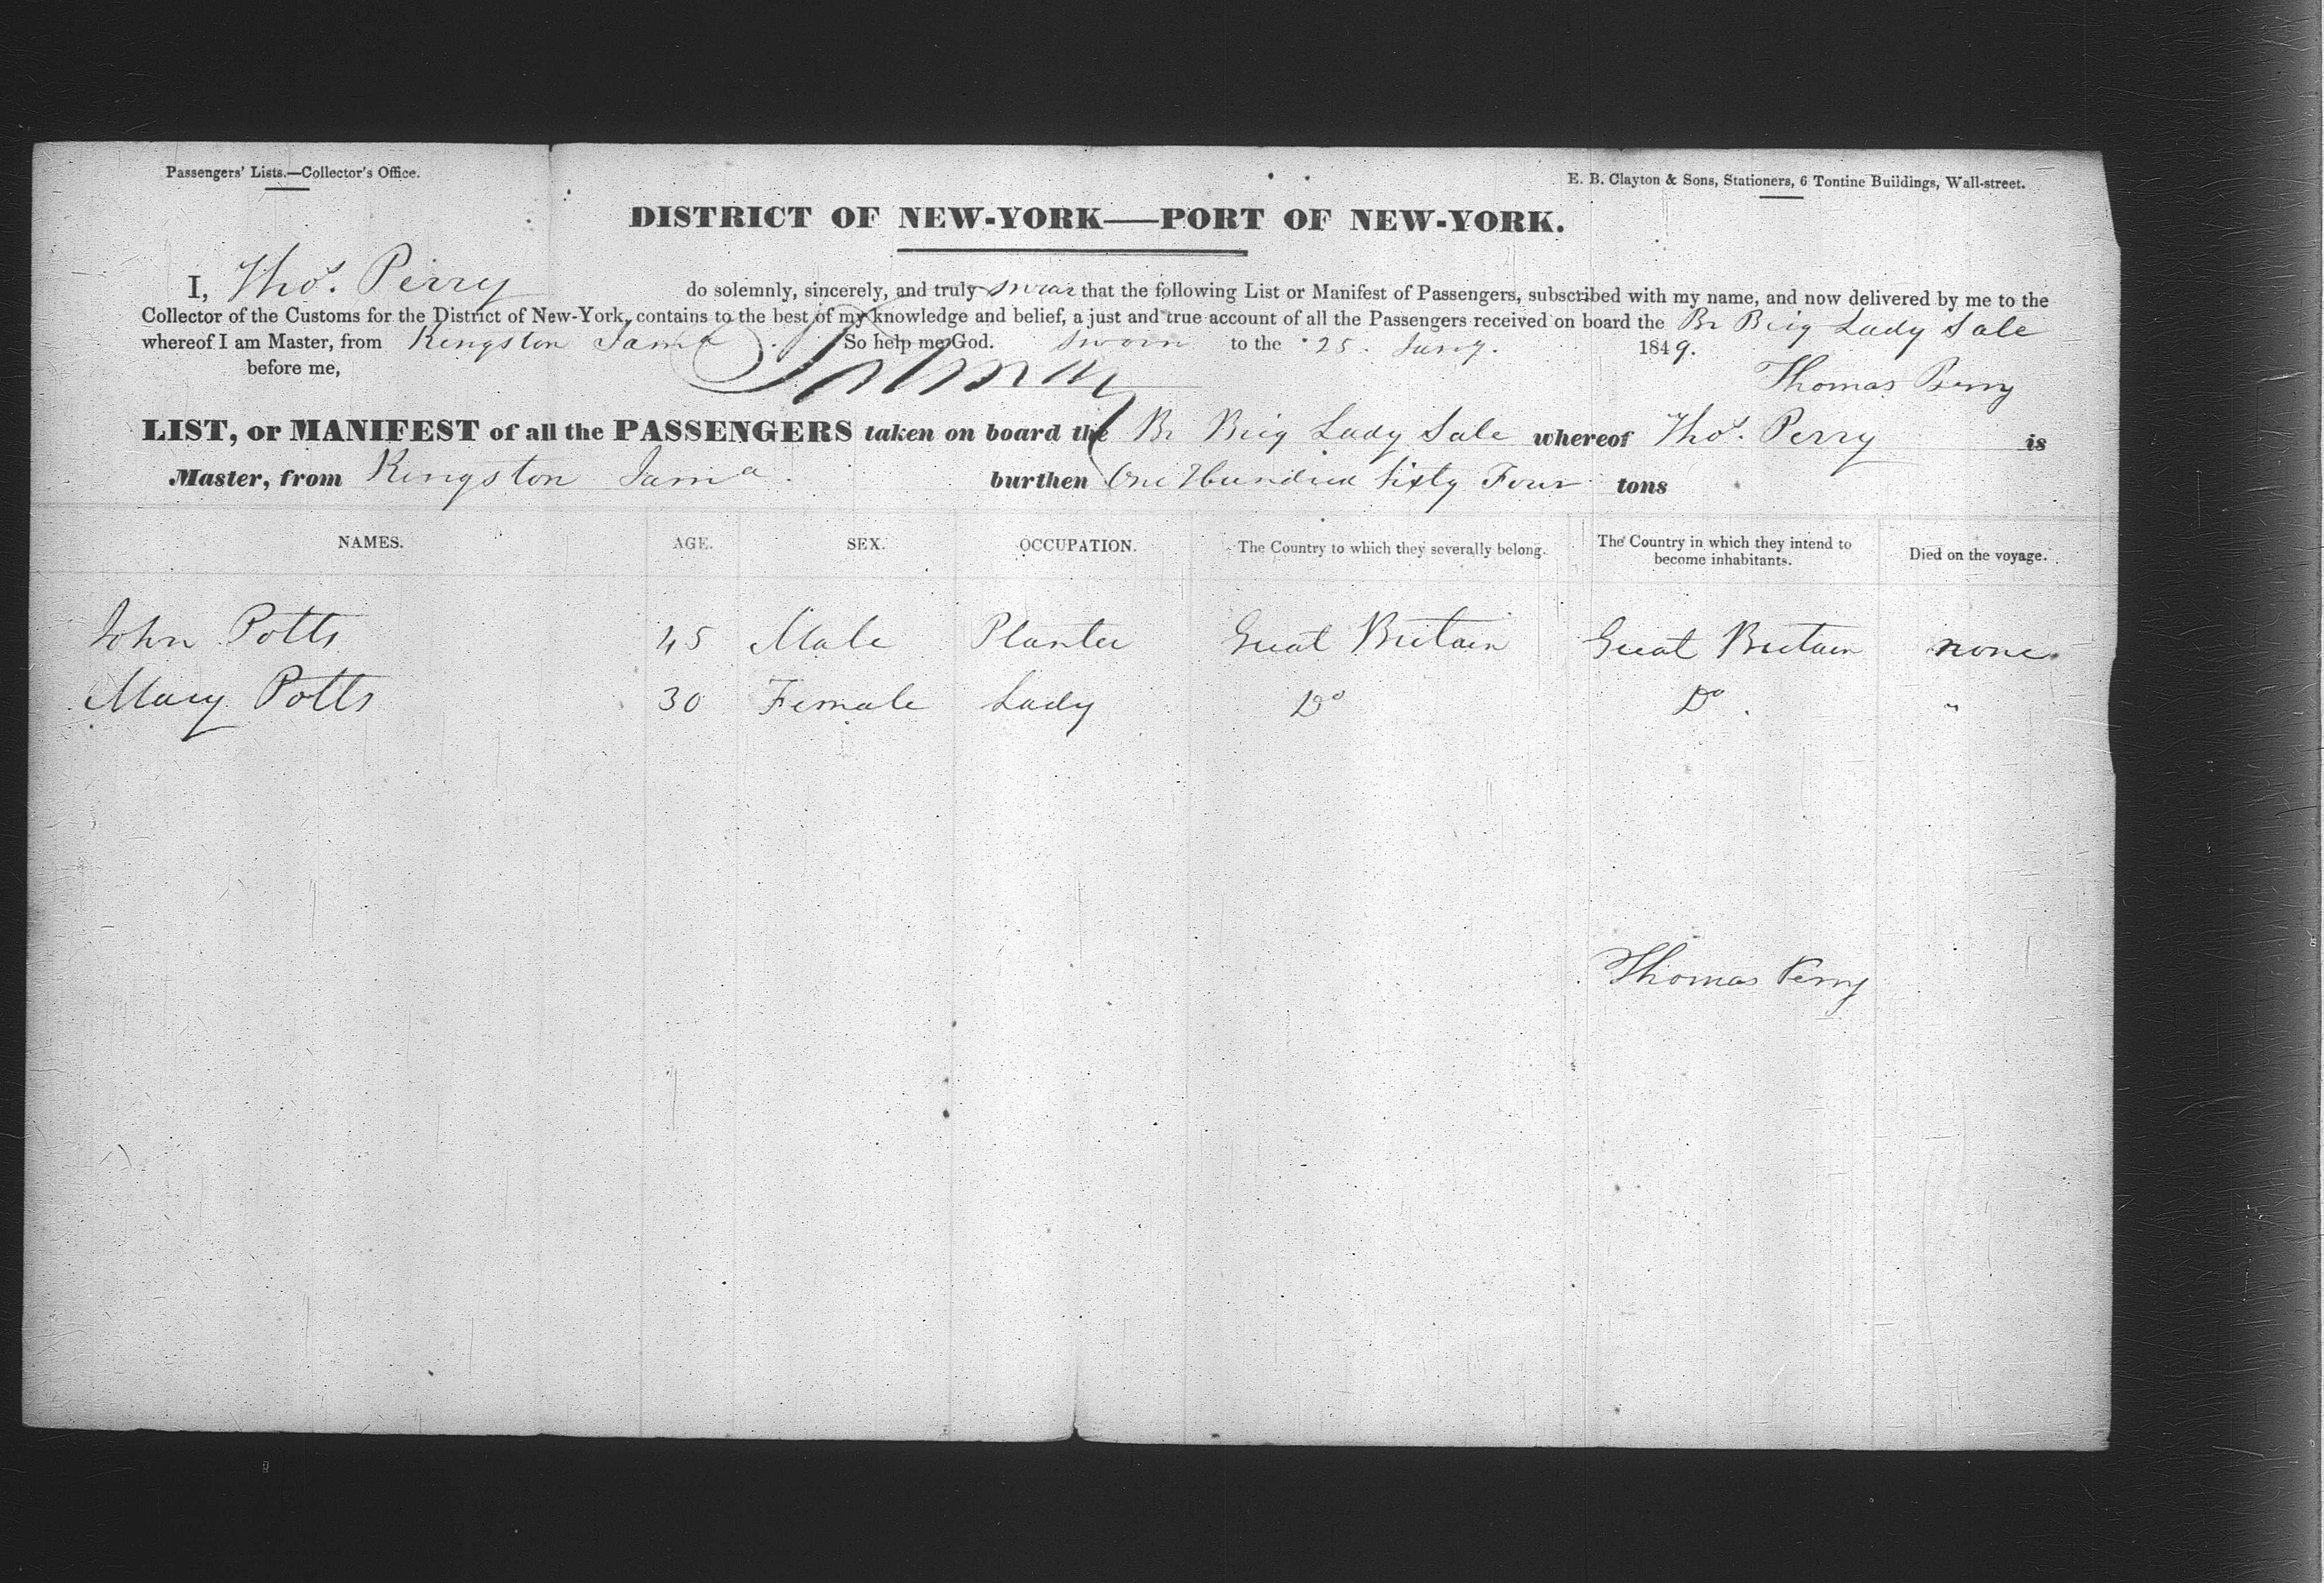 Passengers' Lists.—Collector's Office.
E. B. Clayton & Sons, Stationers, 6 Tontine Buildings, Wall-street.
DISTRICT OF NEW-YORK—PORT OF NEW-YORK.
I, Thos. Perry do solemnly, sincerely, and truly swear that the following List or Manifest of Passengers, subscribed with my name, and now delivered by me to the
Collector of the Customs for the District of New-York, contains to the best of my knowledge and belief, a just and true account of all the Passengers received on board the Br Brig Lady Sale
whereof I am Master, from Kingston Jama. So help me God. Sworn to the 25. Jany. 1849.
before me,
Thomas Perry
LIST, or MANIFEST of all the PASSENGERS taken on board the Br Brig Lady Sale whereof Thos. Perry is
Master, from Kingston Jama. burthen One Hundred Sixty Four tons
NAMES. AGE. SEX. OCCUPATION. The Country to which they severally belong. The Country in which they intend to become inhabitants. Died on the voyage.
John Potts 45 Male Planter Great Britain Great Britain none
Mary Potts 30 Female Lady Do Do "
Thomas Perry